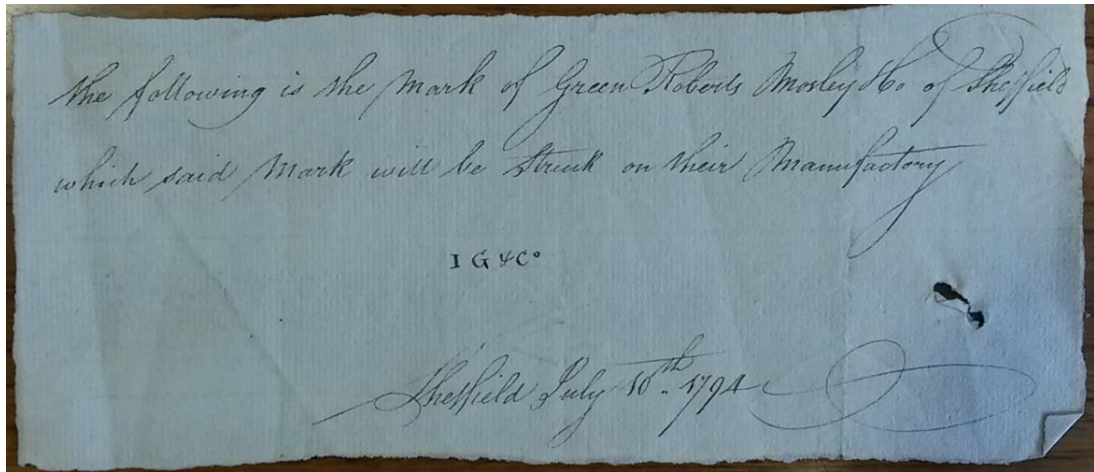 the following is the Mark of Green Roberts Mosley & Co of Sheffield
which said Mark will be Struck on their Manufactory
I G & Co
Sheffield July 10th 1794